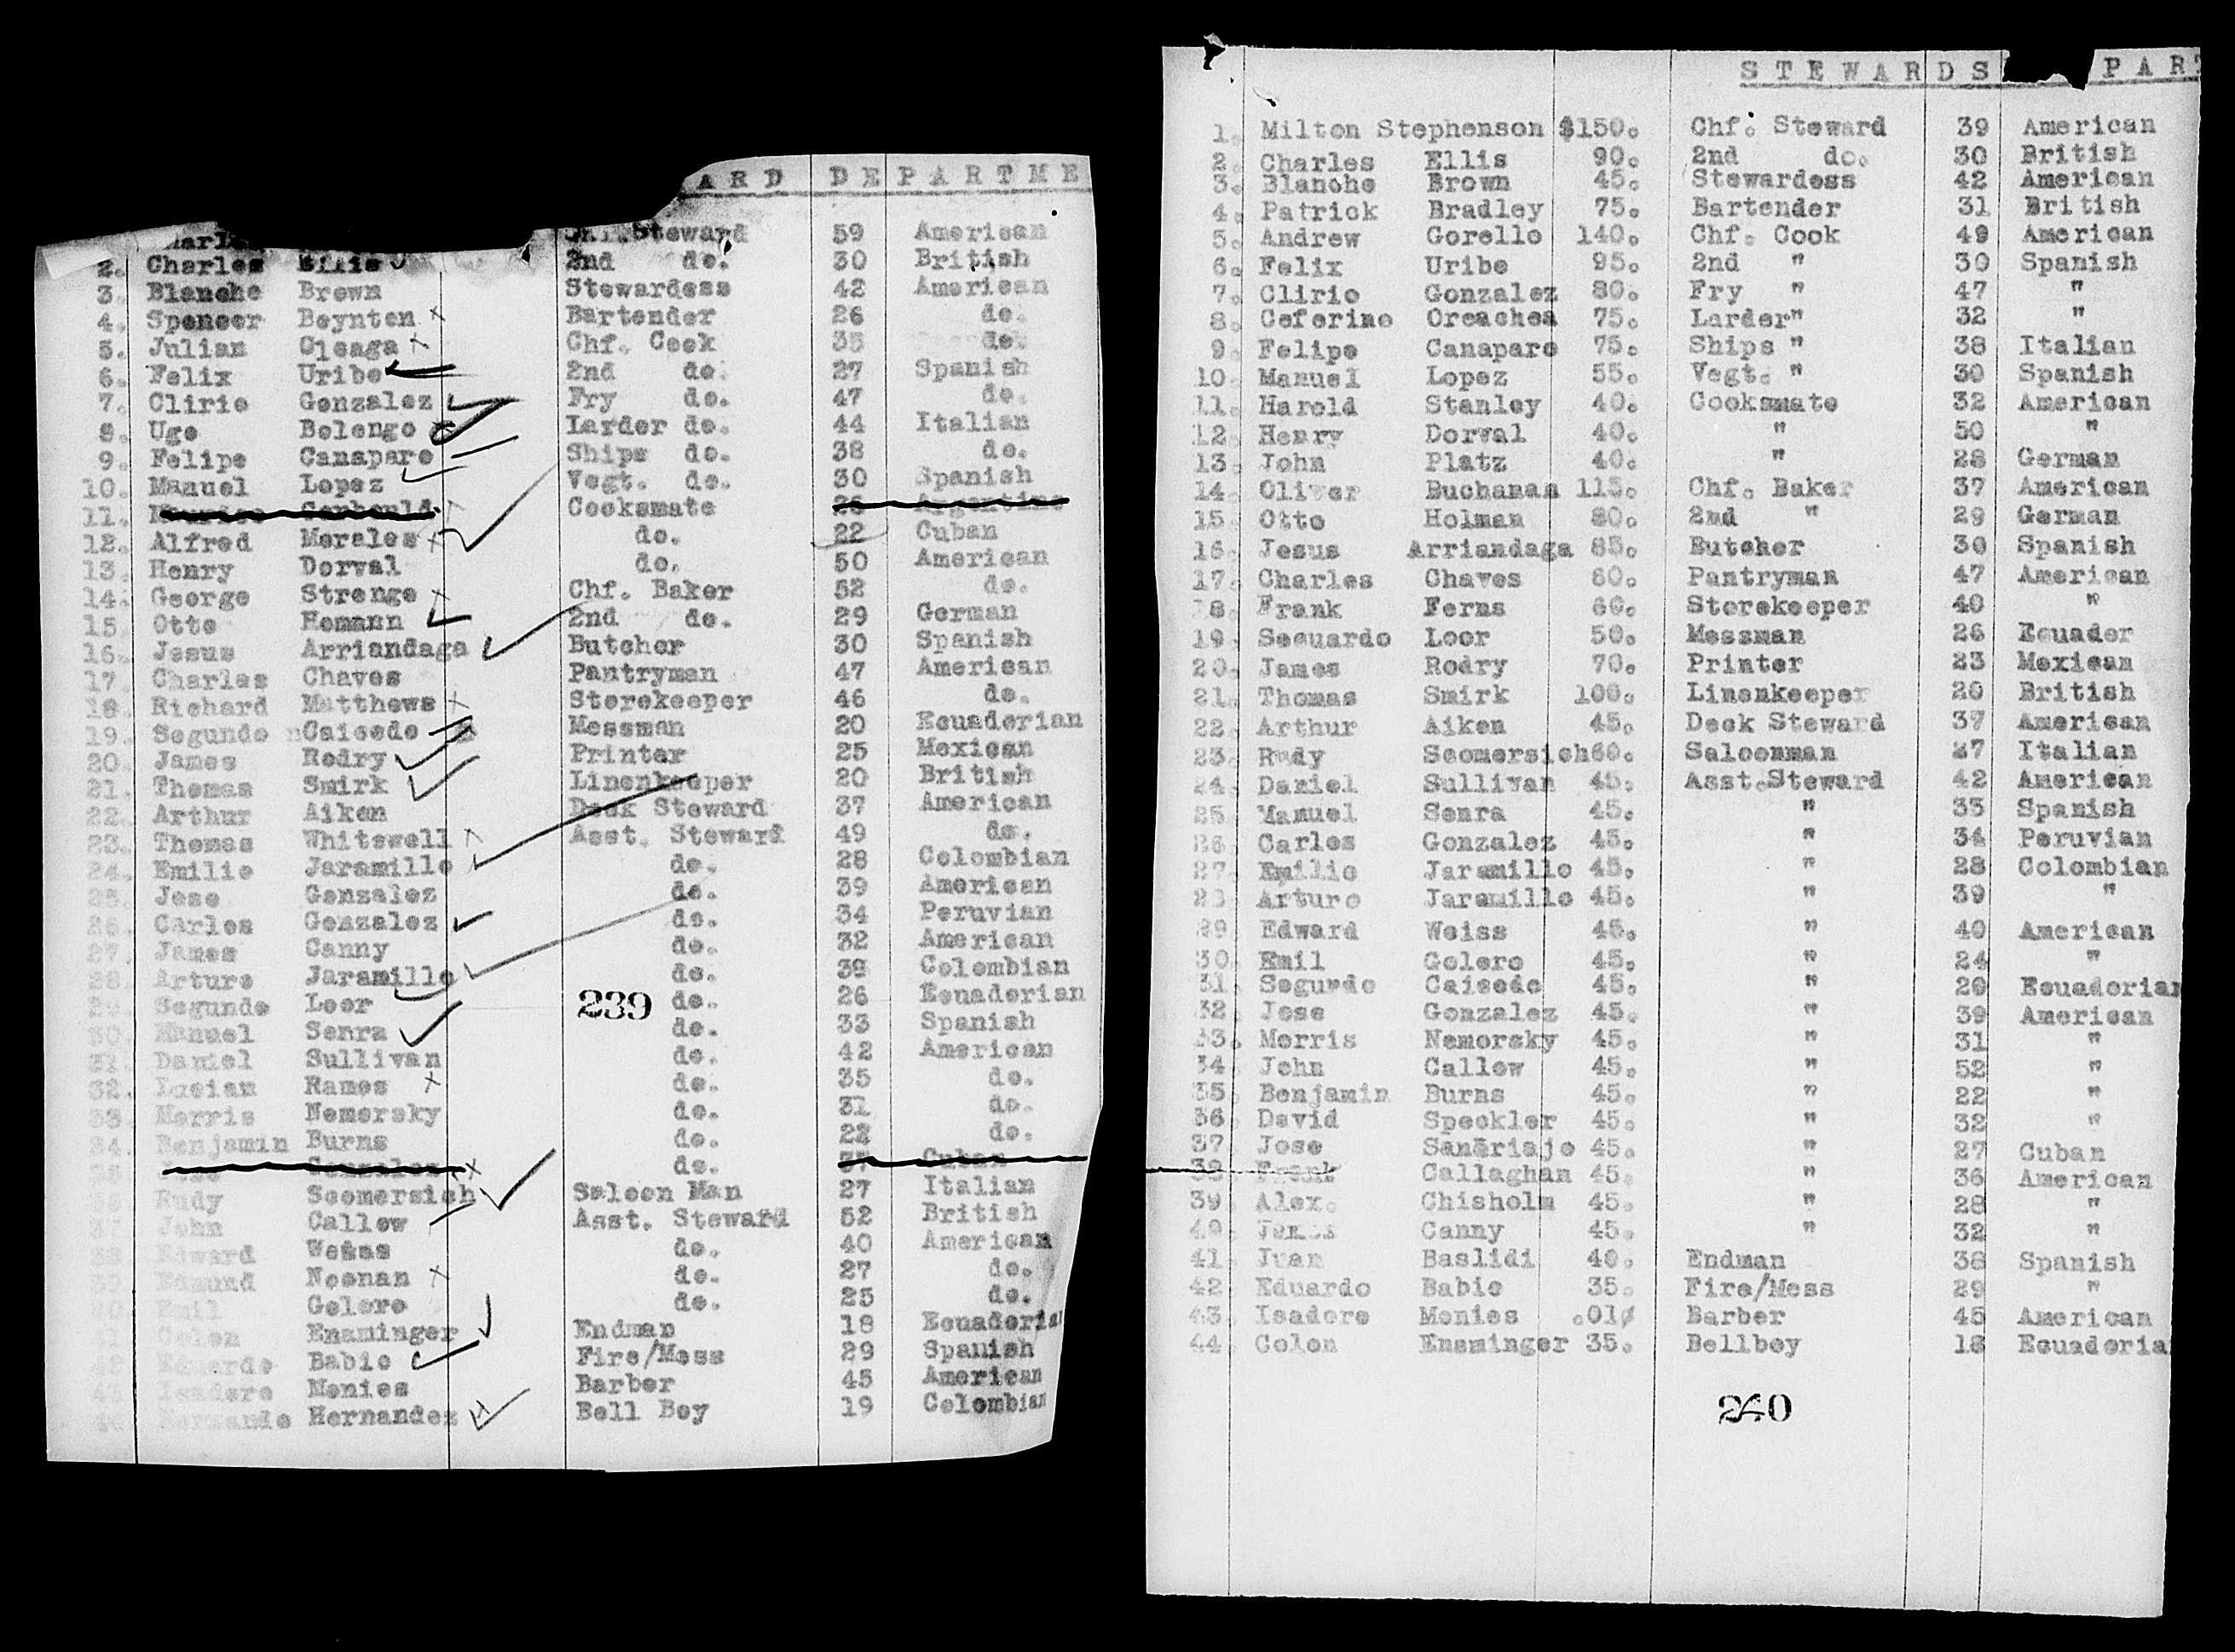 ARD DEPARTME
Chf. Steward 59 American
2. Charles Ellis 2nd do. 30 British
3. Blanche Brown Stewardess 42 American
4. Spencer Boynten x Bartender 26 do.
5. Julian Oleaga x Chf. Cook 35 do.
6. Felix Uribe 2nd do. 27 Spanish
7. Clirio Gonzalez Fry do. 47 do.
8. Ugo Bolengo Larder do. 44 Italian
9. Felipe Canapare Ships do. 38 do.
10. Manuel Lopez Vegt. do. 30 Spanish
11. Cooksmate 26 Argentine
12. Alfred Morales x do. 22 Cuban
13. Henry Dorval do. 50 American
14. George Strenge x Chf. Baker 52 do.
15. Otto Homann 2nd do. 29 German
16. Jesus Arriandaga Butcher 30 Spanish
17. Charles Chaves Pantryman 47 American
18. Richard Matthews x Storekeeper 46 do.
19. Segundo nCaicedo Messman 20 Ecuadorian
20. James Rodry Printer 25 Mexican
21. Thomas Smirk Linenkeeper 20 British
22. Arthur Aiken Deck Steward 37 American
23. Thomas Whitewell x Asst. Steward 49 do.
24. Emilio Jaramillo do. 28 Colombian
25. Jose Gonzalez do. 39 American
26. Carlos Gonzalez do. 34 Peruvian
27. James Canny do. 32 American
28. Arturo Jaramillo do. 39 Colombian
29. Segundo Loor do. 26 Ecuadorian
239
30. Manuel Senra do. 33 Spanish
31. Daniel Sullivan do. 42 American
32. Lucian Rames x do. 35 do.
33. Morris Nemorsky do. 31 do.
34. Benjamin Burns do. 22 do.
35. Gonzalez x do. 37 Cuban
36. Rudy Scomersich Saloon Man 27 Italian
37. John Callow Asst. Steward 52 British
38. Edward Weiss do. 40 American
39. Edmund Noonan x do. 27 do.
40. Emil Golero do. 25 do.
41. Colon Enaminger Endman 18 Ecuadoria
42. Eduardo Babio Fire/Mess 29 Spanish
43. Isadore Monies Barber 45 American
44. Hernando Hernandez Bell Boy 19 Colombian
STEWARDS PART
1. Milton Stephenson $150. Chf. Steward 39 American
2. Charles Ellis 90. 2nd do. 30 British
3. Blanche Brown 45. Stewardess 42 American
4. Patrick Bradley 75. Bartender 31 British
5. Andrew Gorello 140. Chf. Cook 49 American
6. Felix Uribe 95. 2nd " 30 Spanish
7. Clirio Gonzalez 80. Fry " 47 "
8. Ceferino Oreachea 75. Larder" 32 "
9. Felipe Canapare 75. Ships " 38 Italian
10. Manuel Lopez 55. Vegt. " 30 Spanish
11. Harold Stanley 40. Cooksmate 32 American
12. Henry Dorval 40. " 50 "
13. John Platz 40. " 28 German
14. Oliver Buchanan 115. Chf. Baker 37 American
15. Otto Holman 80. 2nd " 29 German
16. Jesus Arriandaga 85. Butcher 30 Spanish
17. Charles Chaves 60. Pantryman 47 American
18. Frank Ferns 60. Storekeeper 40 "
19. Seguardo Loor 50. Messman 26 Ecuador
20. James Rodry 70. Printer 23 Mexican
21. Thomas Smirk 100. Linenkeeper 20 British
22. Arthur Aiken 45. Deck Steward 37 American
23. Rudy Scomersich60. Saloonman 27 Italian
24. Daniel Sullivan 45. Asst.Steward 42 American
25. Manuel Senra 45. " 33 Spanish
26. Carlos Gonzalez 45. " 34 Peruvian
27. Emilio Jaramillo 45. " 28 Colombian
28. Arturo Jaramillo 45. " 39 "
29. Edward Weiss 45. " 40 American
30. Emil Golero 45. " 24 "
31. Segundo Caicedo 45. " 20 Ecuadorian
32. Jose Gonzalez 45. " 39 American
33. Morris Nemorsky 45. " 31 "
34. John Callow 45. " 52 "
35. Benjamin Burns 45. " 22 "
36. David Speckler 45. " 32 "
37 Jose Sanēriajo 45. " 27 Cuban
38 Frank Callaghan 45. " 36 American
39. Alex. Chisholm 45. " 28 "
40. James Canny 45. " 32 "
41. Juan Baslidi 40. Endman 38 Spanish
42. Eduardo Babio 35. Fire/Mess 29 "
43. Isadore Monies .01¢ Barber 45 American
44. Colon Ensminger 35. Bellboy 18 Ecuadoria
240